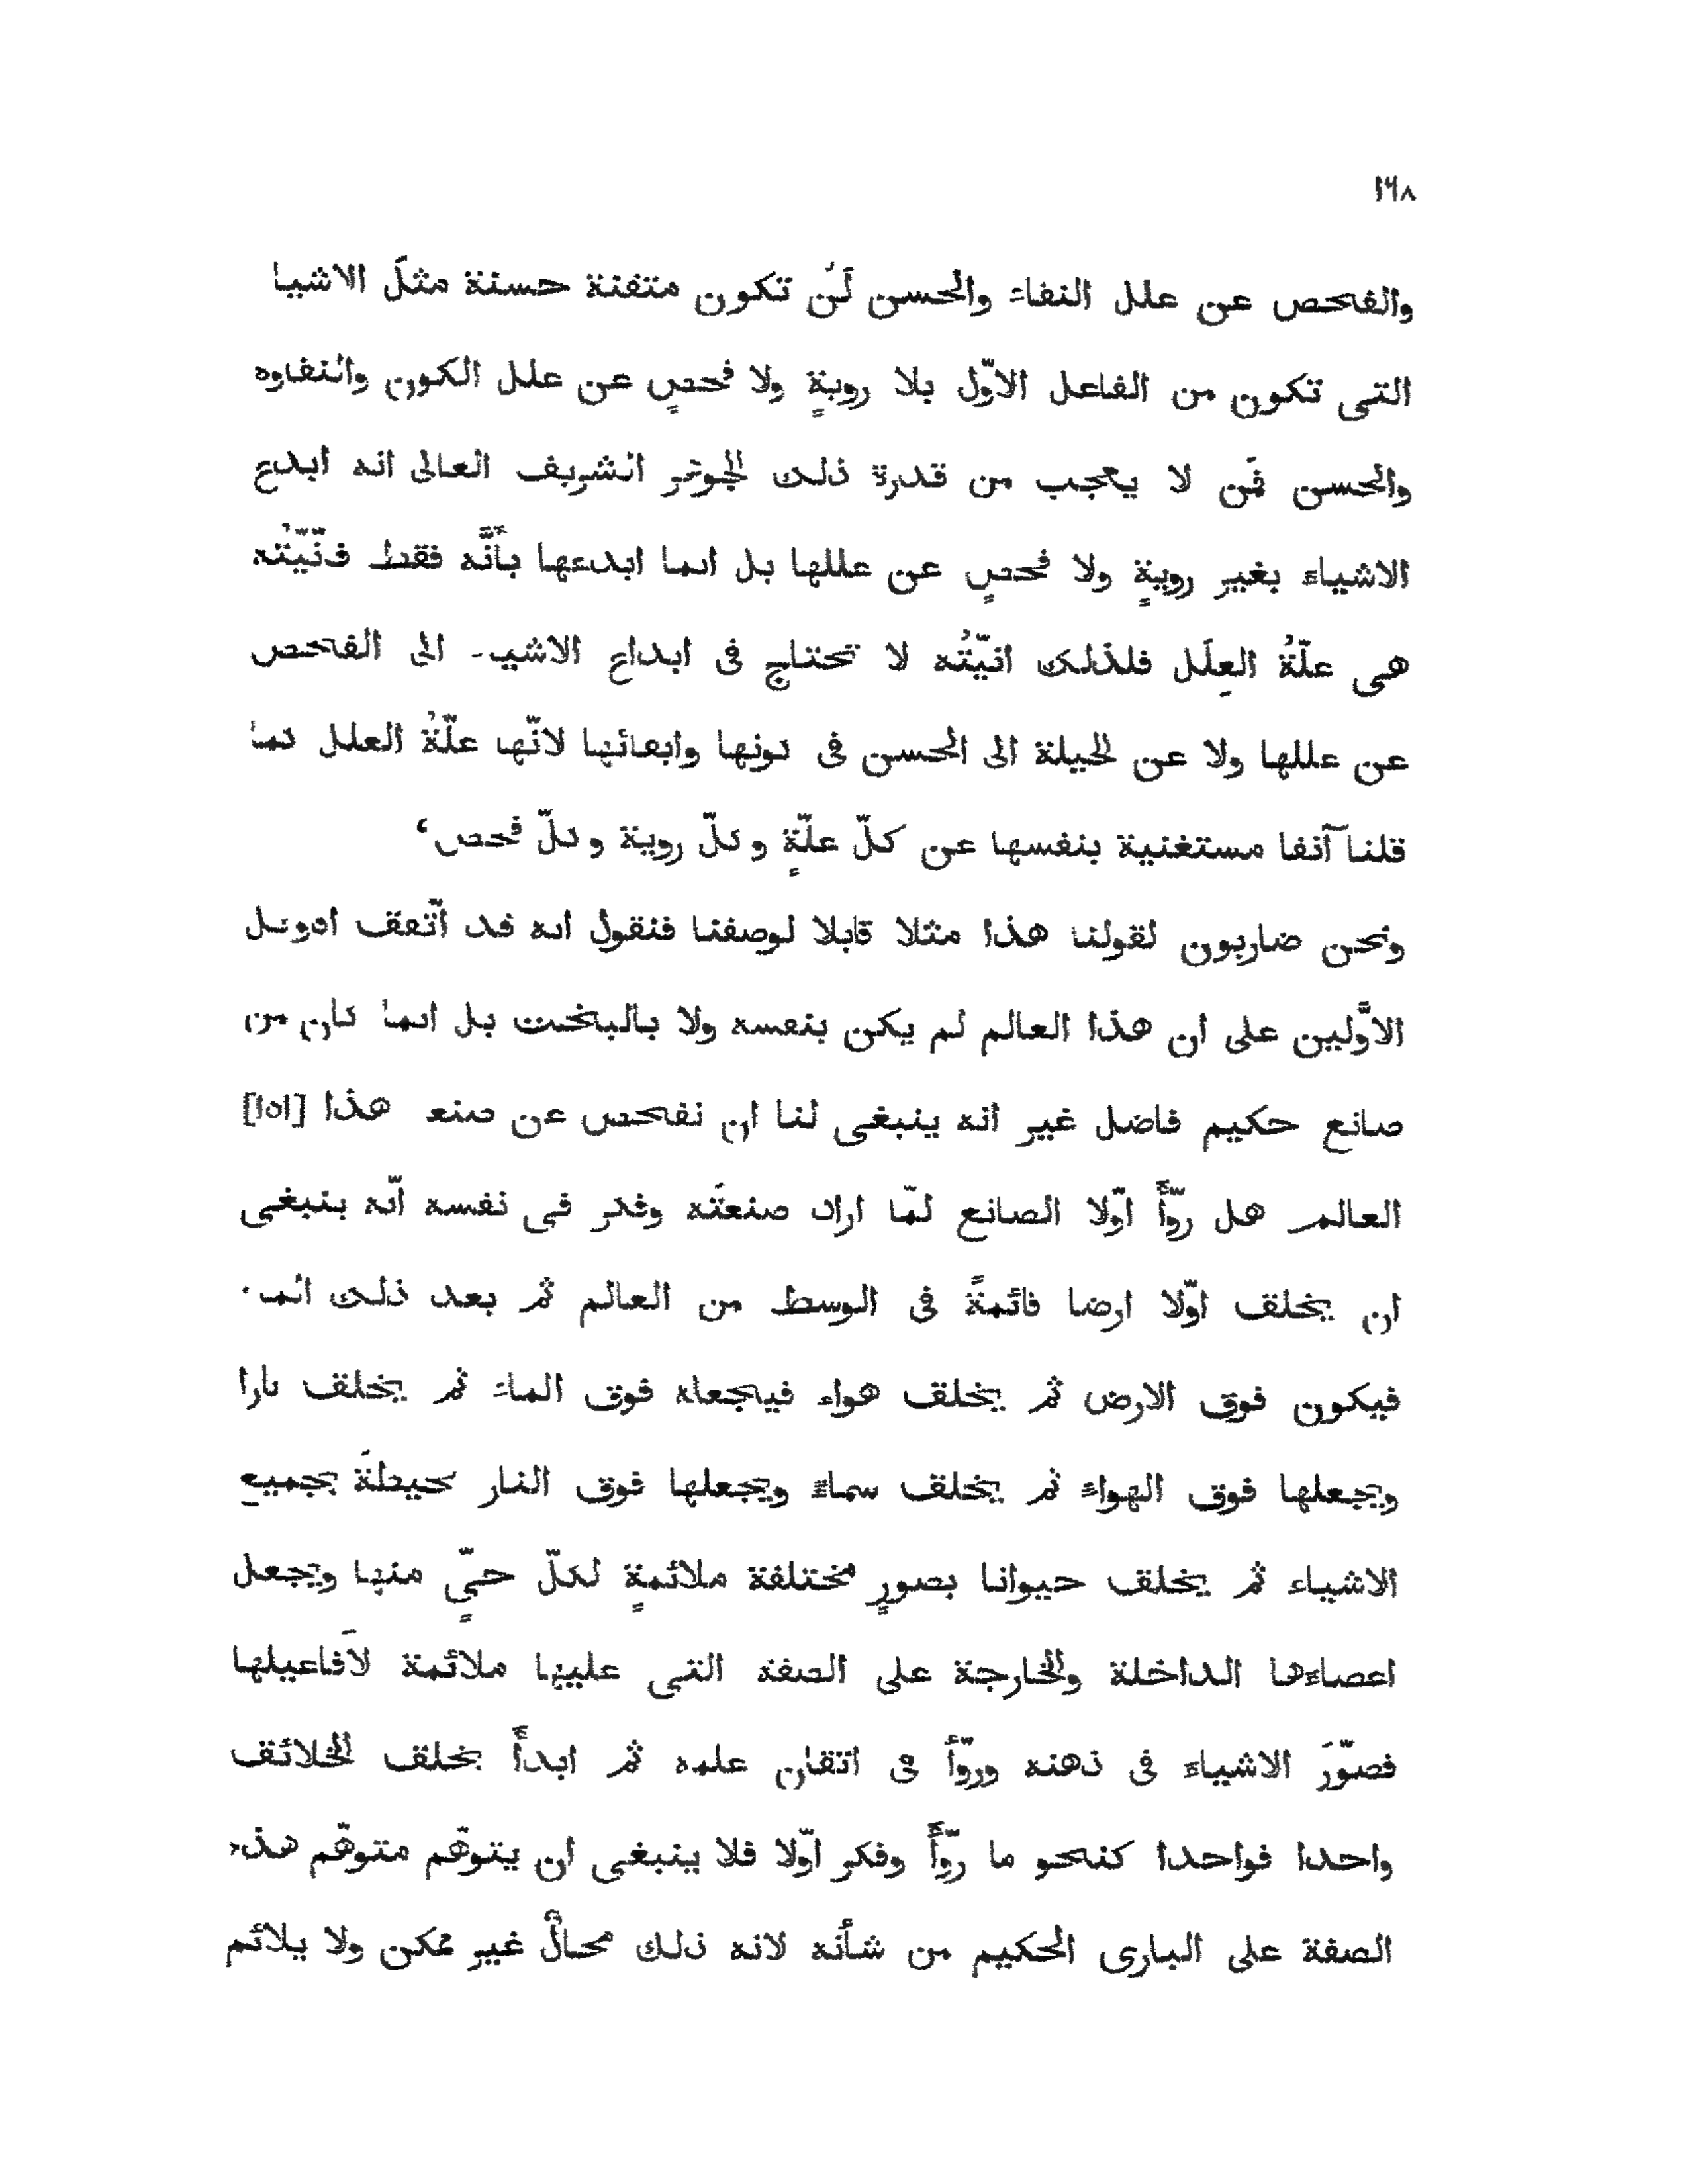 ١٦٨
والفحص عن علل النقاء والحسن لَنْ تكون متقنة حسنة مثلَ الاشيا
التى تكون من الفاعل الاوّل بلا رويةٍ ولا فحصٍ عن علل الكون والنقاوه
والحسن فمَن لا يعجب من قدرة ذلك الجوهر الشريف العالى انه ابدع
الاشياء بغير رويةٍ ولا فحصٍ عن عللها بل انما ابدعها بأَنَّه فقط فانّيّتُه
هى علّةُ العِلَل فلذلك انيّتُه لا تحتاج فى ابداع الاشيا الى الفحص
عن عللها ولا عن الحيلة الى الحسن فى كونها وابقائها لانّها علّةُ العلل كما
قلنا آنفا مستغنية بنفسها عن كلّ علّةٍ وكلّ روية وكلّ فحص،
ونحن ضاربون لقولنا هذا مثلا قابلا لوصفنا فنقول انه قد اتّفقَ
الاوَّلين على ان هذا العالم لم يكن بنفسه ولا بالبخت بل انما كان من
صانع حكيم فاضل غير انه ينبغى لنا ان نفحص عن صنعة هذا [١٥١]
العالم هل روّأَ اوّلا الصانع لمّا اراد صنعتَه وفكر فى نفسه انّه ينبغى
ان يخلق اوّلا ارضا قائمةً فى الوسط من العالم ثم بعد ذلك الماء
فيكون فوق الارض ثم يخلق هواء فيجعله فوق الماء ثم يخلق نارا
ويجعلها فوق الهواء ثم يخلق سماءً ويجعلها فوق النار محيطةَ بجميع
الاشياء ثم يخلق حيوانا بصورٍ مختلفة ملائمةٍ لكلّ حىٍّ منها ويجعل
اعضاءها الداخلة والخارجة على الصفة التى عليها ملائمة لاَفاعيلها
فصوّرَ الاشياءَ فى ذهنه وروّأَ فى اتقان علمه ثم ابدأَ بخلق الخلائق
واحدا فواحدا كنحو ما روّأَ وفكر اوّلا فلا ينبغى ان يتوهّم متوهّم هذه
الصفة على البارى الحكيم من شأنه لانه ذلك محالٌ غير ممكن ولا يلائم